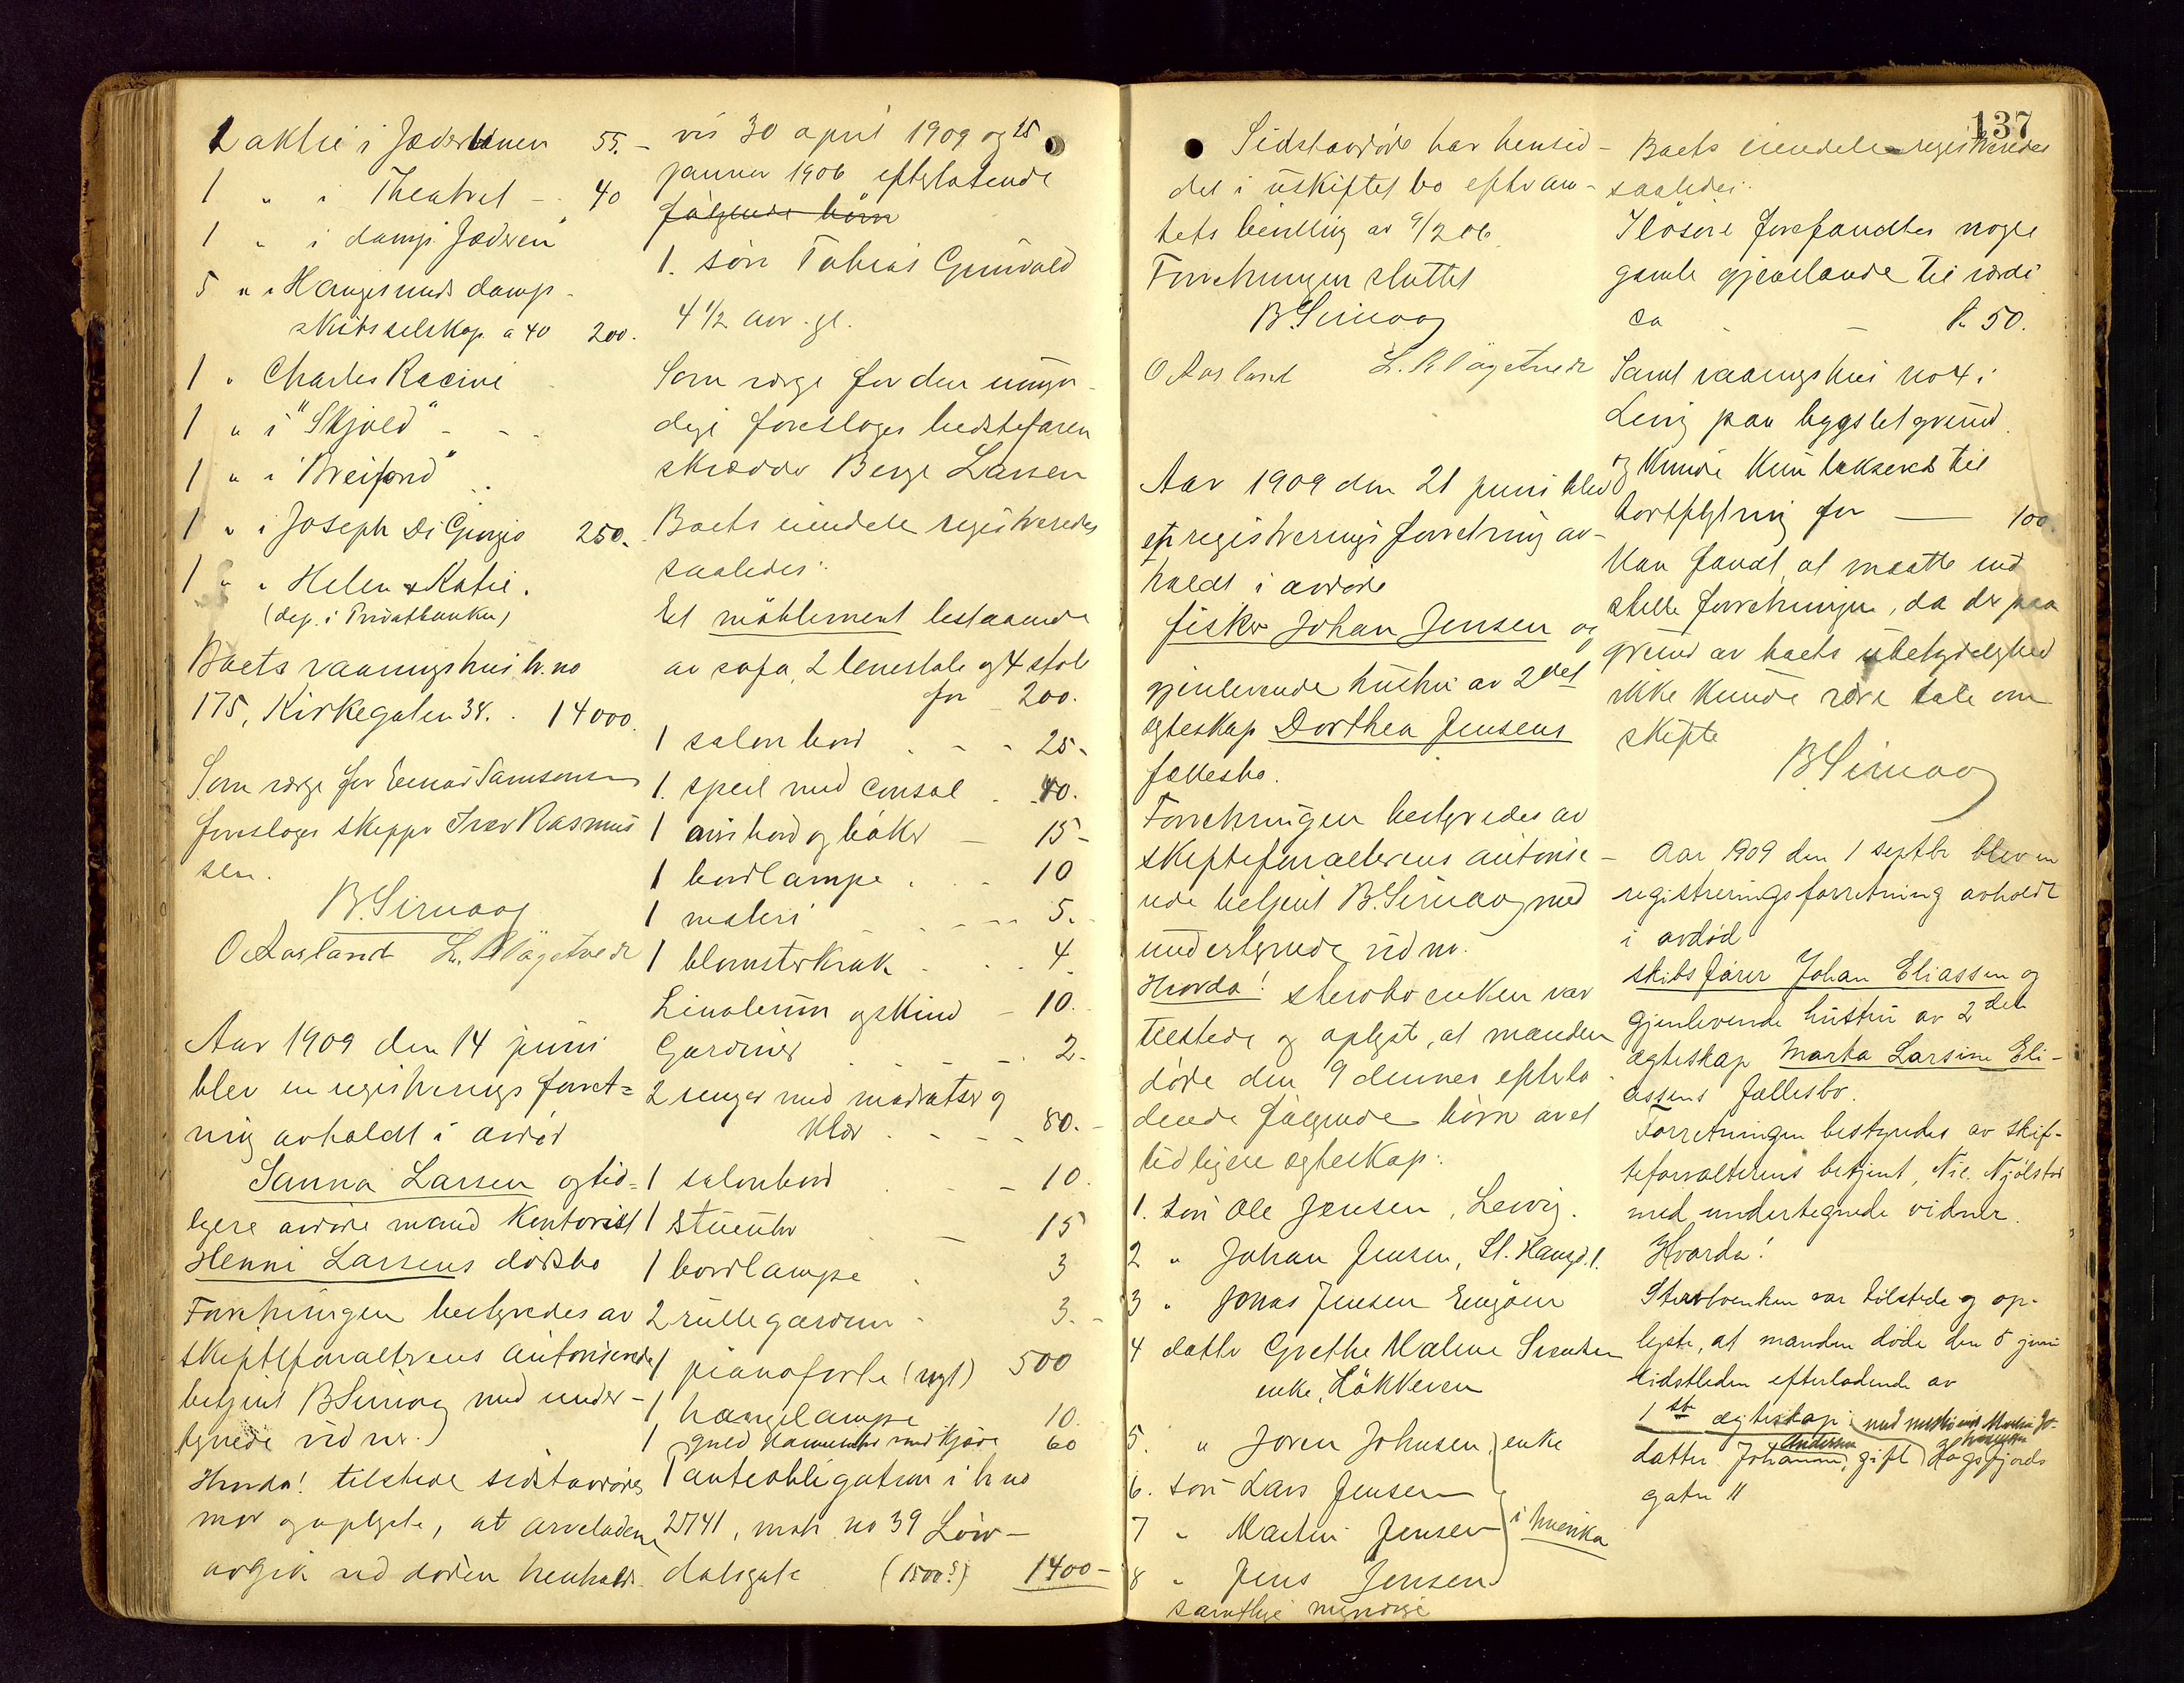 2 aktie i Jæderbanen 55.-
1 " i Theatret - - 40
1 " i damp. Jæderen"
5 " i Haugesunds damp-
skibsselskap a 40 200.
1 " Charles Racine
1 " i "Skjold" - - -
1 " i "Breifond" . .
1 " i Joseph Di Giorgio 250.
1 " " Helen & Katie.
(dep. i Privatbanken)
Boets vaaningshus br. no
175, Kirkegaten 38. . 14000.
Som værge for Einar Samsonsen
foreslages skipper Iver Rasmus
sen.
B. Sirnæs
O Aasland L. R. Vågetvedt
Aar 1909 den 14 juni
blev en registrerings forret=
ning avholdt i avdød
Sanna Larsen og tid=
ligere avdøde mand kontorist
Henni Larsens dødsbo
Forretningen bestyredes av
skifteforvalterens autoriserede
betjent B Sirnæs med under-
tegnede vidner.
Hvorda! tilstede sidstavdødes
mor og oplyste, at arveladerne
avgik ved døden henholds-
vis 30 april 1909 og 25
januar 1906 efterlatende
følgende børn
1. søn Tobias Grünvald
4 1/2 aar gl.
Som værge for den umyn-
dige foreslages bedstefaren
skrædder Berge Larsen
Boets eiendele registreredes
saaledes:
Et møblement bestaaende
av sofa, 2 lenestole og 4 stole
for 200.
1 salon bord . - - 25-
1. speil med consol . 40.
1 avisbord og bøker - 15-
1 bordlampe . . - 10
1 maleri - - 5.
1 blomsterkruk . . . 4.
Linoleum og skind - 10.
Gardiner . - - . 2.
2 senger med madratser og
klær . - - - 80.-
1 salonbord . - - 10.
1 stueuhr - 15
1 bordlampe . 3
2 rullegardiner - 3.-
1 pianoforte (nyt) 500
1 hængelampe 10.
1 guld dameuhr med kjæde 60
Panteobligation i br no
2741, matr. no 39 Løv-
dalsgate (1500?) 1400-
137
Sidstavdøde har hensid-
det i uskiftet bo efter am-
tets bevilling av 9/2 06
Forretningen sluttet
B Sirnæs
O Aasland L. R Vågetvedt
Aar 1909 den 21 juni blev
en registrerings forretning av-
holdt i avdøde
fisker Johan Jensen og
gjenlevende hustru av 2det
egteskap Dorthea Jensens
fællesbo.
Forretningen bestyredes av
skifteforvalterens autorise-
rede betjent B. Sirnæs med
undertegnede vidner.
Hvorda! sterbo enken var
tilstede og oplyst, at manden
døde den 9 dennes efterla
dende følgende børn av et
tidligere egteskap:
1. søn Ole Jensen, Lervig.
2 " Johan Jensen, St. Haugs. 1.
3 " Jonas Jensen Engøen
4 datter Grethe Malene Svendsen
enke, Løkkeveien
5. " Joren Johnsen enke
6. søn Lars Jensen
7 " Martin Jensen
i Amerika
8 " Jens Jensen
samtlige myndige
Boets eiendele registreredes
saaledes:
I løsøre forefandtes nogle
gamle gjenstande til værdi
ca - - kr. 50.
Samt vaaningshus no 4 i
Lervig paa bygslet grund
og kunde kun takseres til
bortflytning for - 100.
Man fandt at maatte ind
stille forretningen, da der paa
grund av boets ubetydelighed
ikke kunde være tale om
skifte
B Sirnæs
Aar 1909 den 1 septbr blev en
registreringsforretning avholdt
i avdød
skibsfører Johan Eliassen og
gjenlevende hustru av 2det
ægteskap Marta Larsine Eli-
assens fællesbo.
Forretningen bestyredes av skif-
teforvalterens betjent, Nil. Njølstad
med undertegnede vidner.
Hvorda!
Sterboenken var tilstede og op-
lyste, at manden døde den 5 juni
sidstleden efterladende av
1ste ægteskap
datter Johanne Andersen, gift Høgsfjords
gaten 11